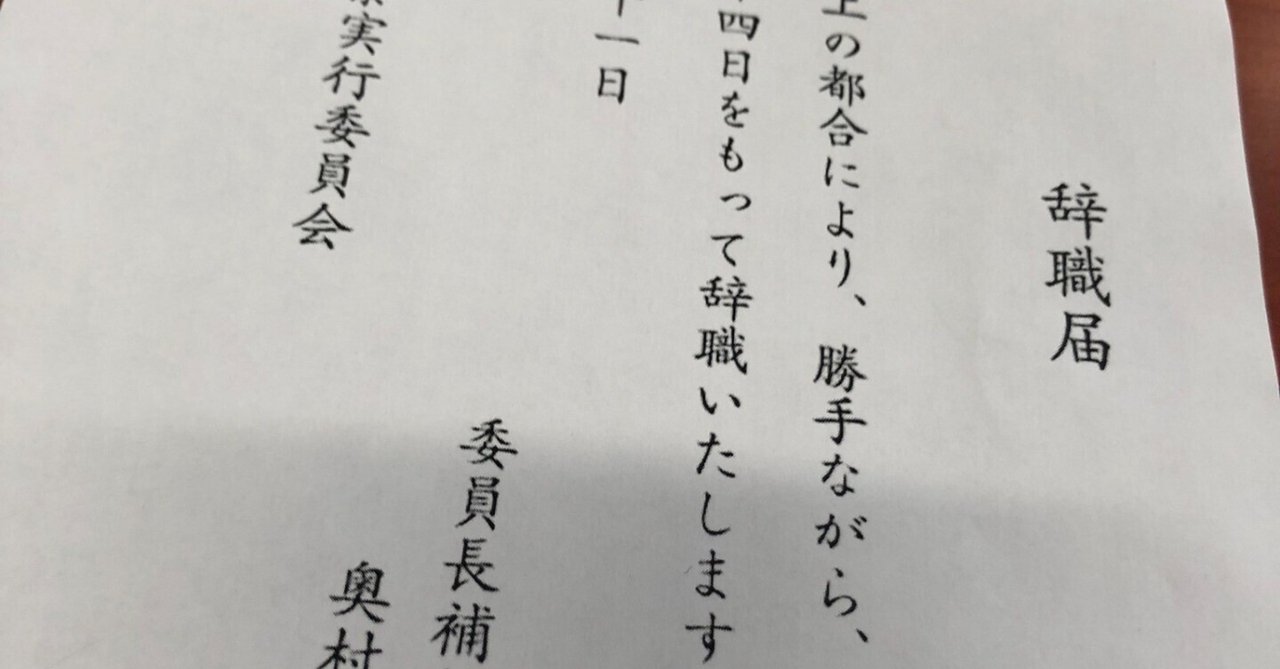 辞職届
上の都合により、勝手ながら、
四日をもって辞職いたします
十一日
委員長補
奥村
実行委員会